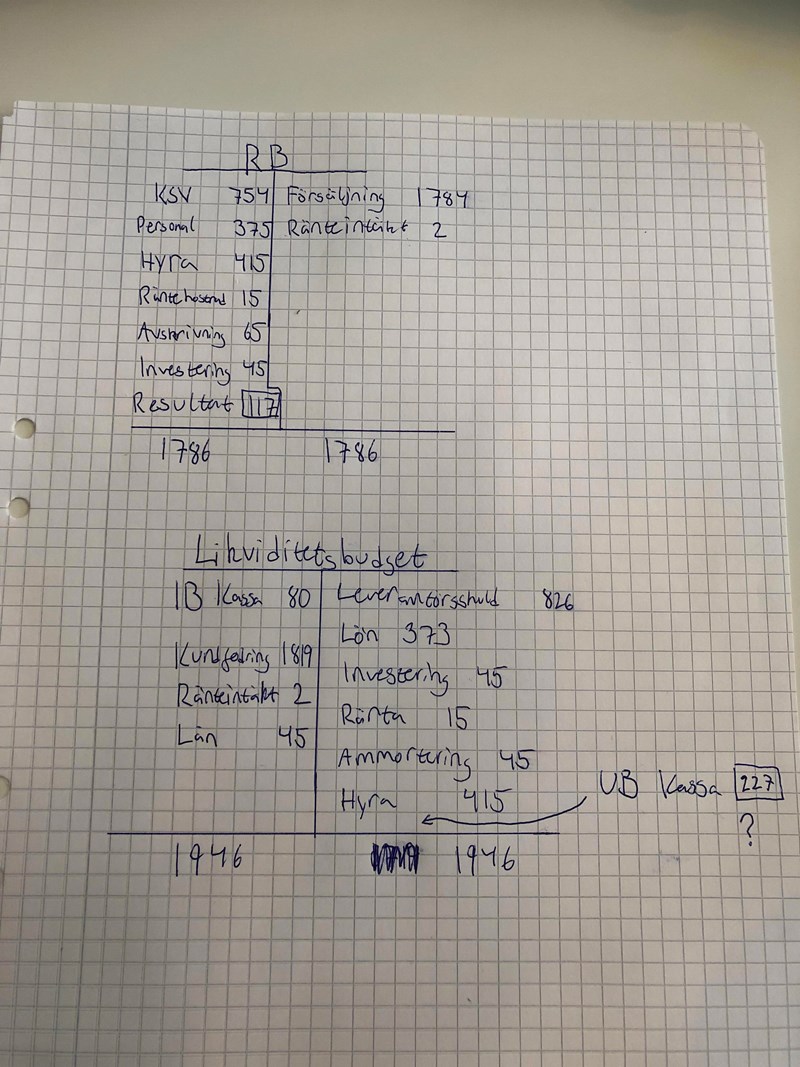 RB
KSV 754 Försäljning 1784
Personal 375 Ränteintäkt 2
Hyra 415
Räntekostnad 15
Avskrivning 65
Investering 45
Resultat 117
1786 1786
Likviditetsbudget
IB Kassa 80 Leverantörsskuld 826
Lön 373
Kundfodring 1819 Investering 45
Ränteintäkt 2 Ränta 15
Lån 45 Ammortering 45
Hyra 415 UB Kassa 227
?
1946 1946